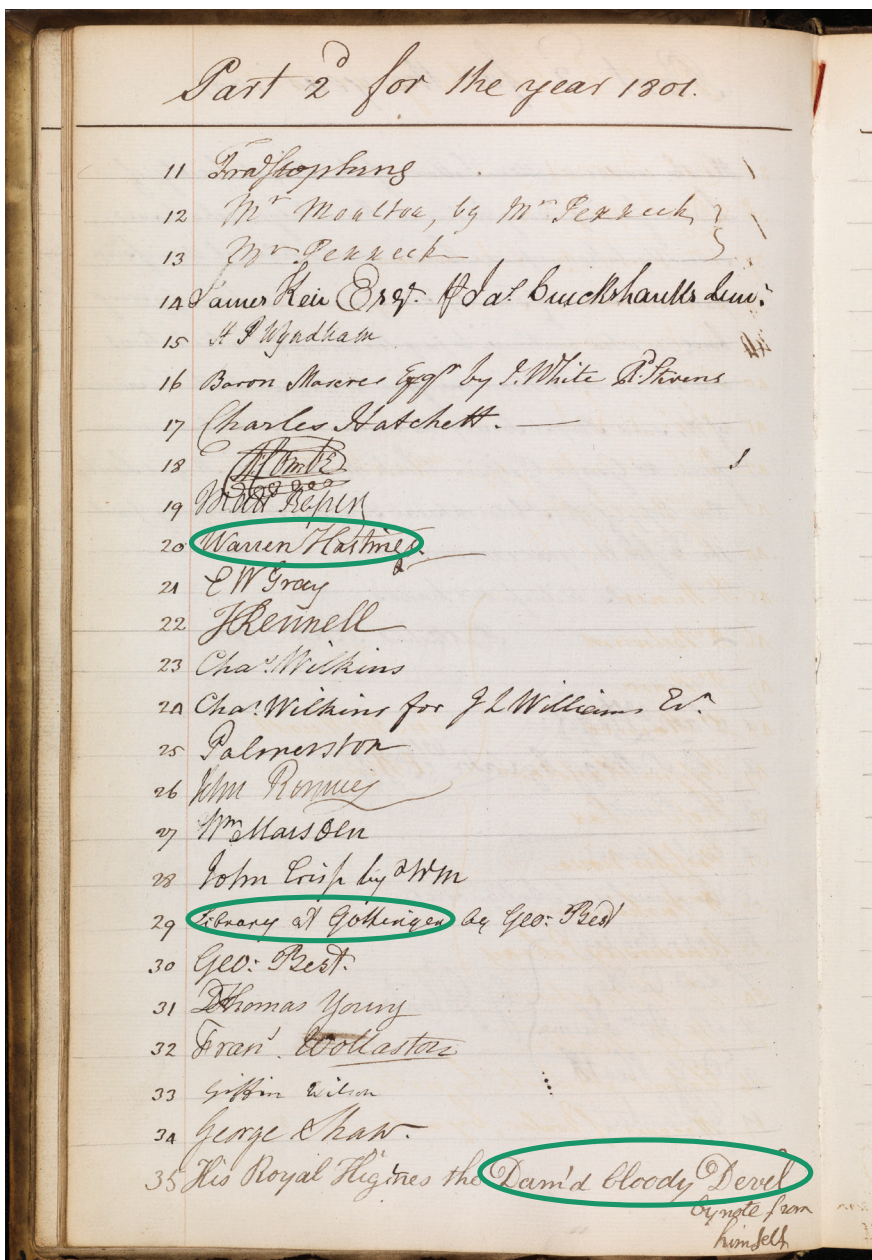 Part 2d for the year 1801.
11 Fra Stephens
12 Mr Moulton, by Mr Penneck
13 Mr Penneck
14 James Keir Esqr. Jas. Cruickshanks Junr.
15 H P Wyndham
16 Baron Maseres by J. White
17 Charles Hatchett.
18
19 Roper
20 Warren Hastings
21 E W Gray
22 J Rennell
23 Chas Wilkins
24 Chas. Wilkins for J L Williams Er.
25 Palmerston
26 John Romney
27 Wm Marsden
28 John Crisp by WM
29 Library at Göttingen by Geo: Best
30 Geo: Best.
31 Thomas Young
32 Fran. Wollaston
33 Giffin Wilson
34 George Shaw.
35 His Royal Higines the Dam'd bloody Devel
by note from
himself